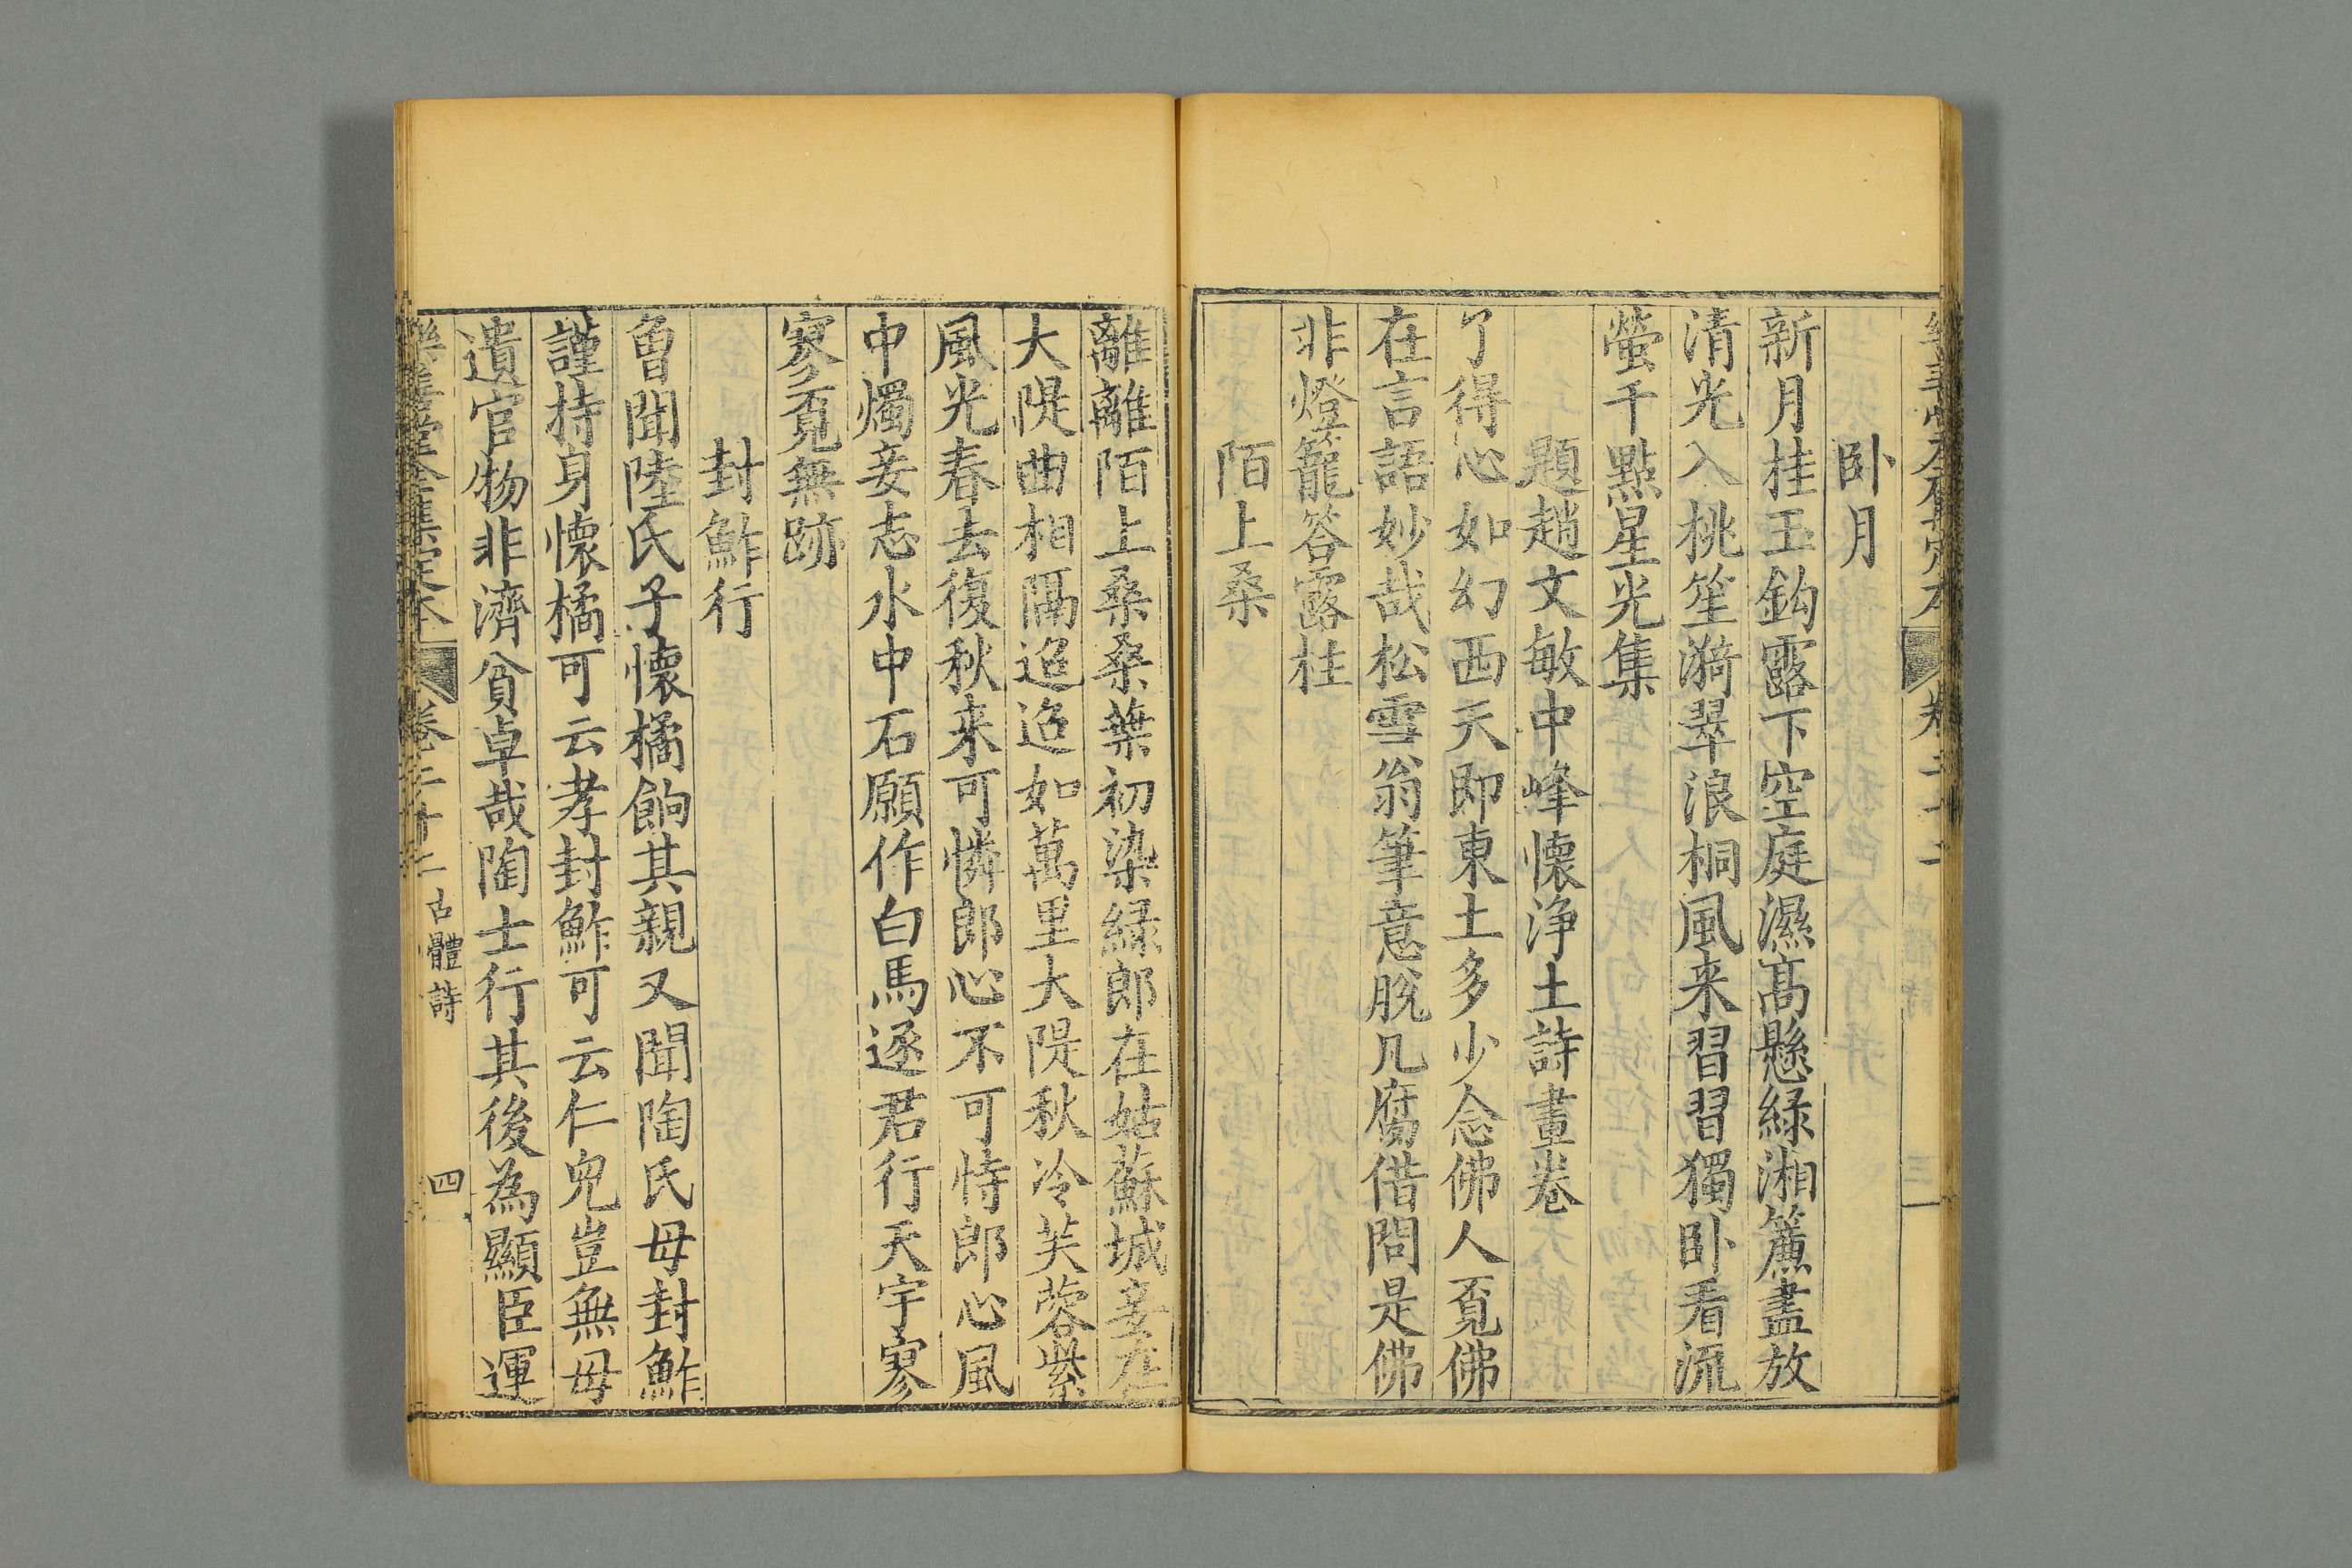 卧月
新月桂玉鈎露下空庭濕髙懸緑湘簾盡放
清光入桃笙漪翠浪桐風来習習獨卧看流
螢千點星光集
題趙文敏中峰懐浄土詩畫卷
了得心如幻西天即東土多少念佛人覔佛
在言語妙哉松雪翁筆意脱凡腐借問是佛
非燈籠答露柱
陌上桑
離離陌上桑桑葉初染緑郎在姑蘇城妾在
大隄曲相隔迢迢如萬里大隄秋冷芙蓉紫
風光春去復秋来可憐郎心不可恃郎心風
中燭妾志水中石願作白馬逐君行天宇寥
寥覔無跡
封鮓行
曾聞陸氏子懐橘餉其親又聞陶氏母封鮓
謹持身懐橘可云孝封鮓可云仁兒豈無母
遺官物非濟貧卓哉陶士行其後為顯臣運
樂善堂全集定本 卷二十二 古體詩 四